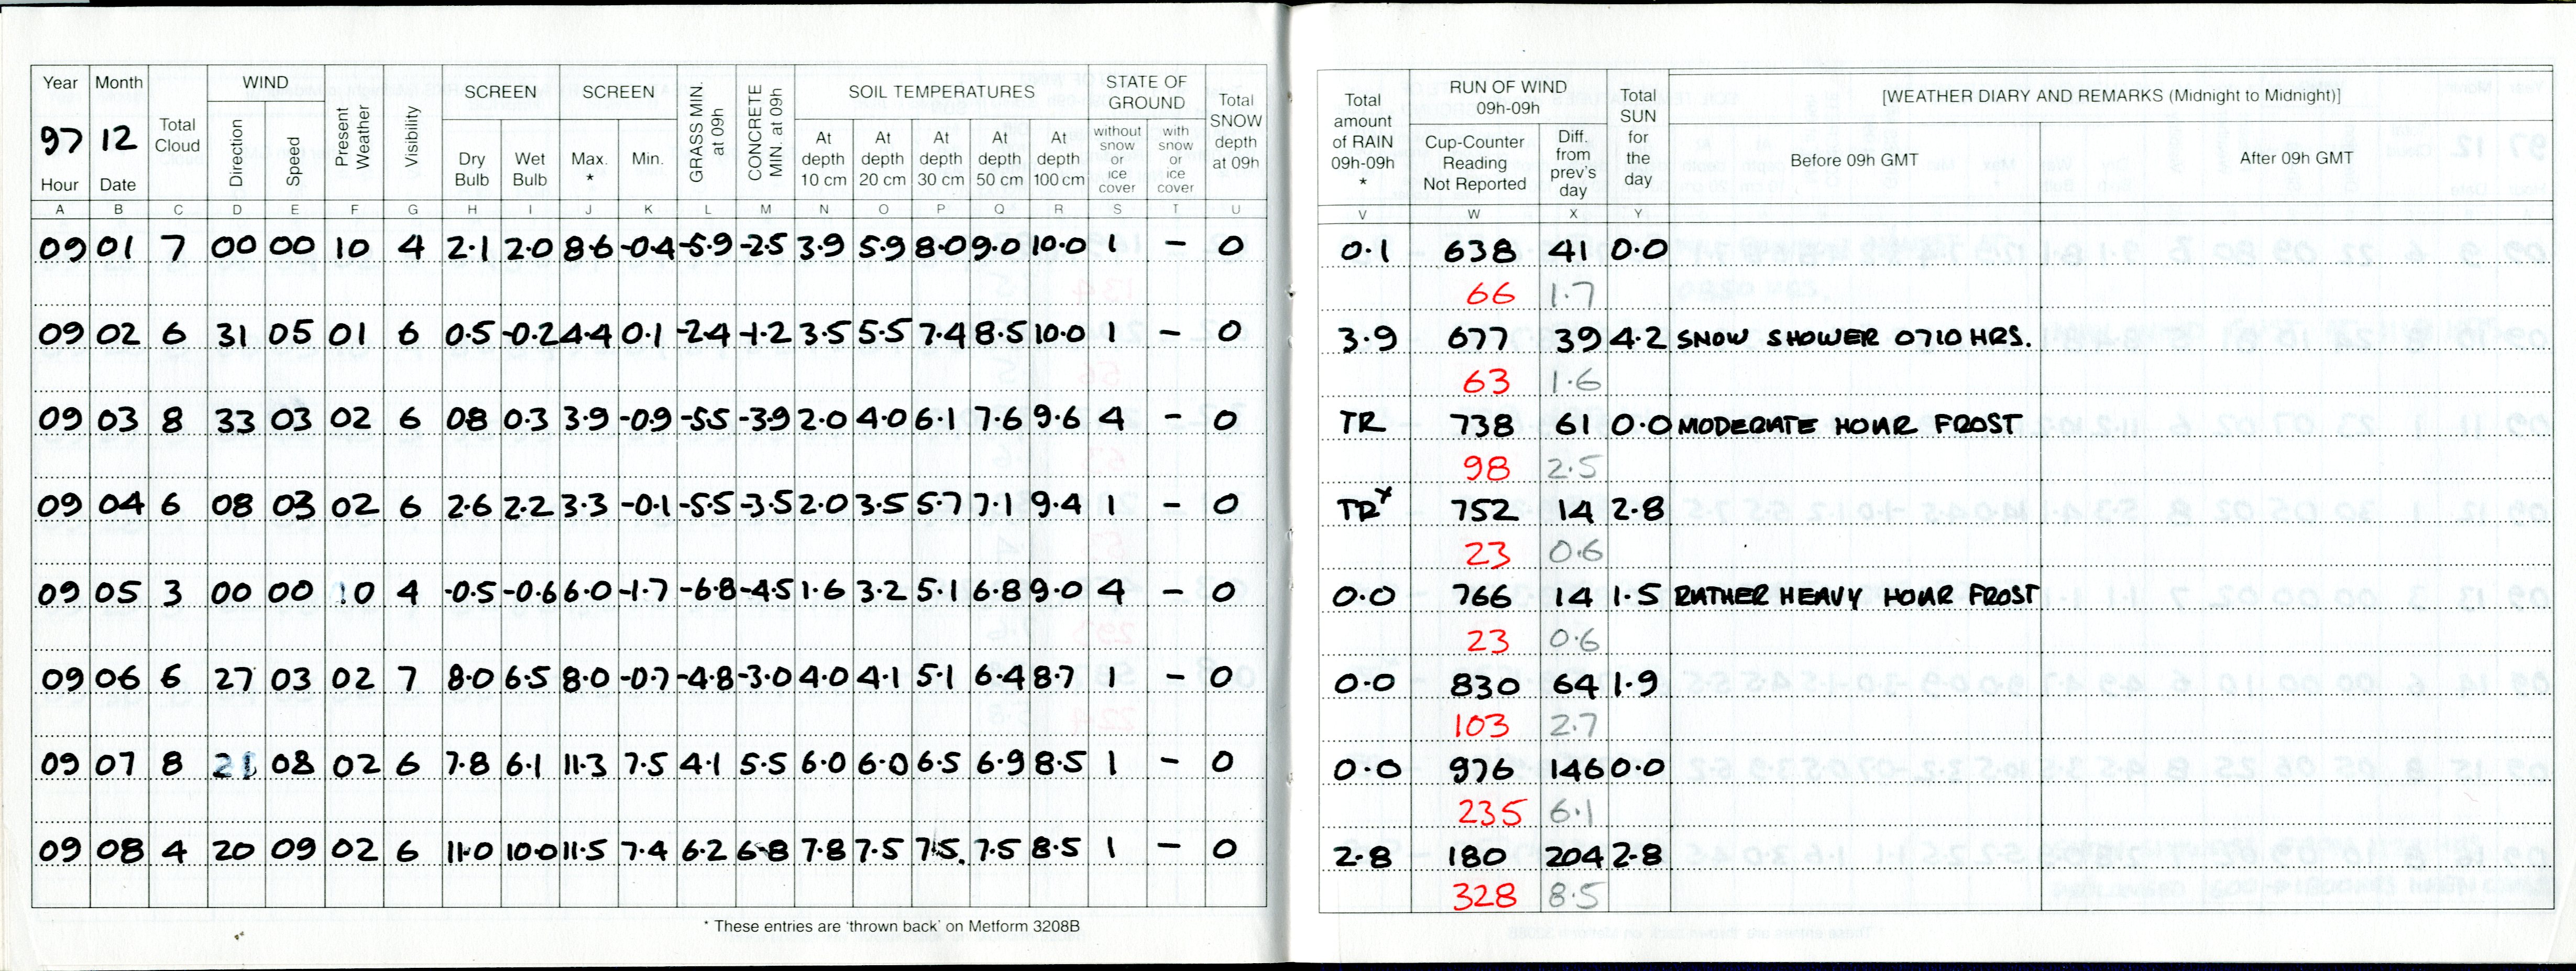 Year Month WIND SCREEN SCREEN GRASS MIN. at 09h CONCRETE MIN. at 09h SOIL TEMPERATURES STATE OF GROUND Total SNOW depth at 09h
97 12 Total Cloud Direction Speed Present Weather Visibility Dry Bulb Wet Bulb Max. * Min. At depth 10 cm At depth 20 cm At depth 30 cm At depth 50 cm At depth 100 cm without snow or ice cover with snow or ice cover
Hour Date
A B C D E F G H I J K L M N O P Q R S T U
09 01 7 00 00 10 4 2.1 2.0 8.6 -0.4 -5.9 -2.5 3.9 5.9 8.0 9.0 10.0 1 - 0
09 02 6 31 05 01 6 0.5 -0.2 4.4 0.1 -2.4 -1.2 3.5 5.5 7.4 8.5 10.0 1 - 0
09 03 8 33 03 02 6 0.8 0.3 3.9 -0.9 -5.5 -3.9 2.0 4.0 6.1 7.6 9.6 4 - 0
09 04 6 08 03 02 6 2.6 2.2 3.3 -0.1 -5.5 -3.5 2.0 3.5 5.7 7.1 9.4 1 - 0
09 05 3 00 00 10 4 -0.5 -0.6 6.0 -1.7 -6.8 -4.5 1.6 3.2 5.1 6.8 9.0 4 - 0
09 06 6 27 03 02 7 8.0 6.5 8.0 -0.7 -4.8 -3.0 4.0 4.1 5.1 6.4 8.7 1 - 0
09 07 8 21 08 02 6 7.8 6.1 11.3 7.5 4.1 5.5 6.0 6.0 6.5 6.9 8.5 1 - 0
09 08 4 20 09 02 6 11.0 10.0 11.5 7.4 6.2 6.8 7.8 7.5 7.5 7.5 8.5 1 - 0
* These entries are 'thrown back' on Metform 3208B
Total amount of RAIN 09h-09h * RUN OF WIND 09h-09h Total SUN for the day [WEATHER DIARY AND REMARKS (Midnight to Midnight)]
Cup-Counter Reading Not Reported Diff. from prev's day Before 09h GMT After 09h GMT
V W X Y
0.1 638 41 0.0
66 1.7
3.9 677 39 4.2 SNOW SHOWER 0710 HRS.
63 1.6
TR 738 61 0.0 MODERATE HOAR FROST
98 2.5
TR* 752 14 2.8
23 0.6
0.0 766 14 1.5 RATHER HEAVY HOAR FROST
23 0.6
0.0 830 64 1.9
103 2.7
0.0 976 146 0.0
235 6.1
2.8 180 204 2.8
328 8.5